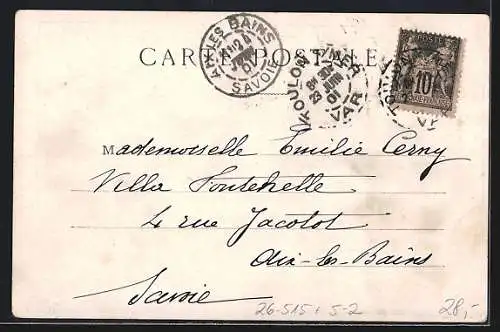 AIX-LES-BAINS
24
JUIN
01
SAVOIE
CARTE POSTALE
TOULON S/MER
8E 30
23 JUIN
01
VAR
10
Mademoiselle Emilie Cerny
Villa Fontenelle
4 rue Jacotot
Aix-les-Bains
Savoie
26-515
5-2
28,-